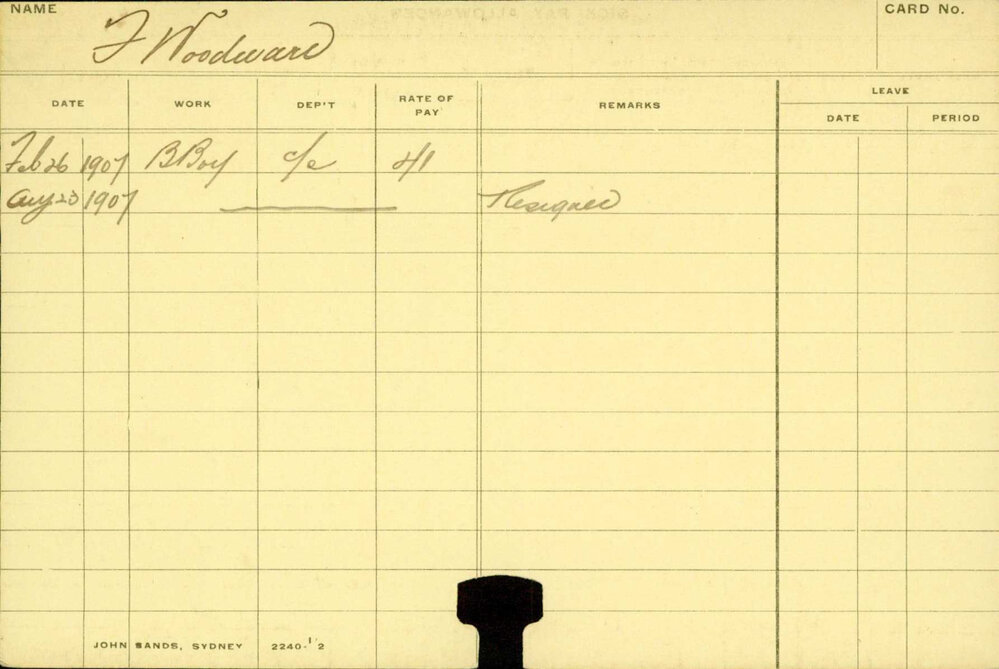 NAME CARD No.
F Woodward
DATE WORK DEP'T RATE OF PAY REMARKS LEAVE
DATE PERIOD
Feb 26 1907 B Boy c/e 4/1
Aug 23 1907 Resigned
JOHN SANDS, SYDNEY 2240-1/2